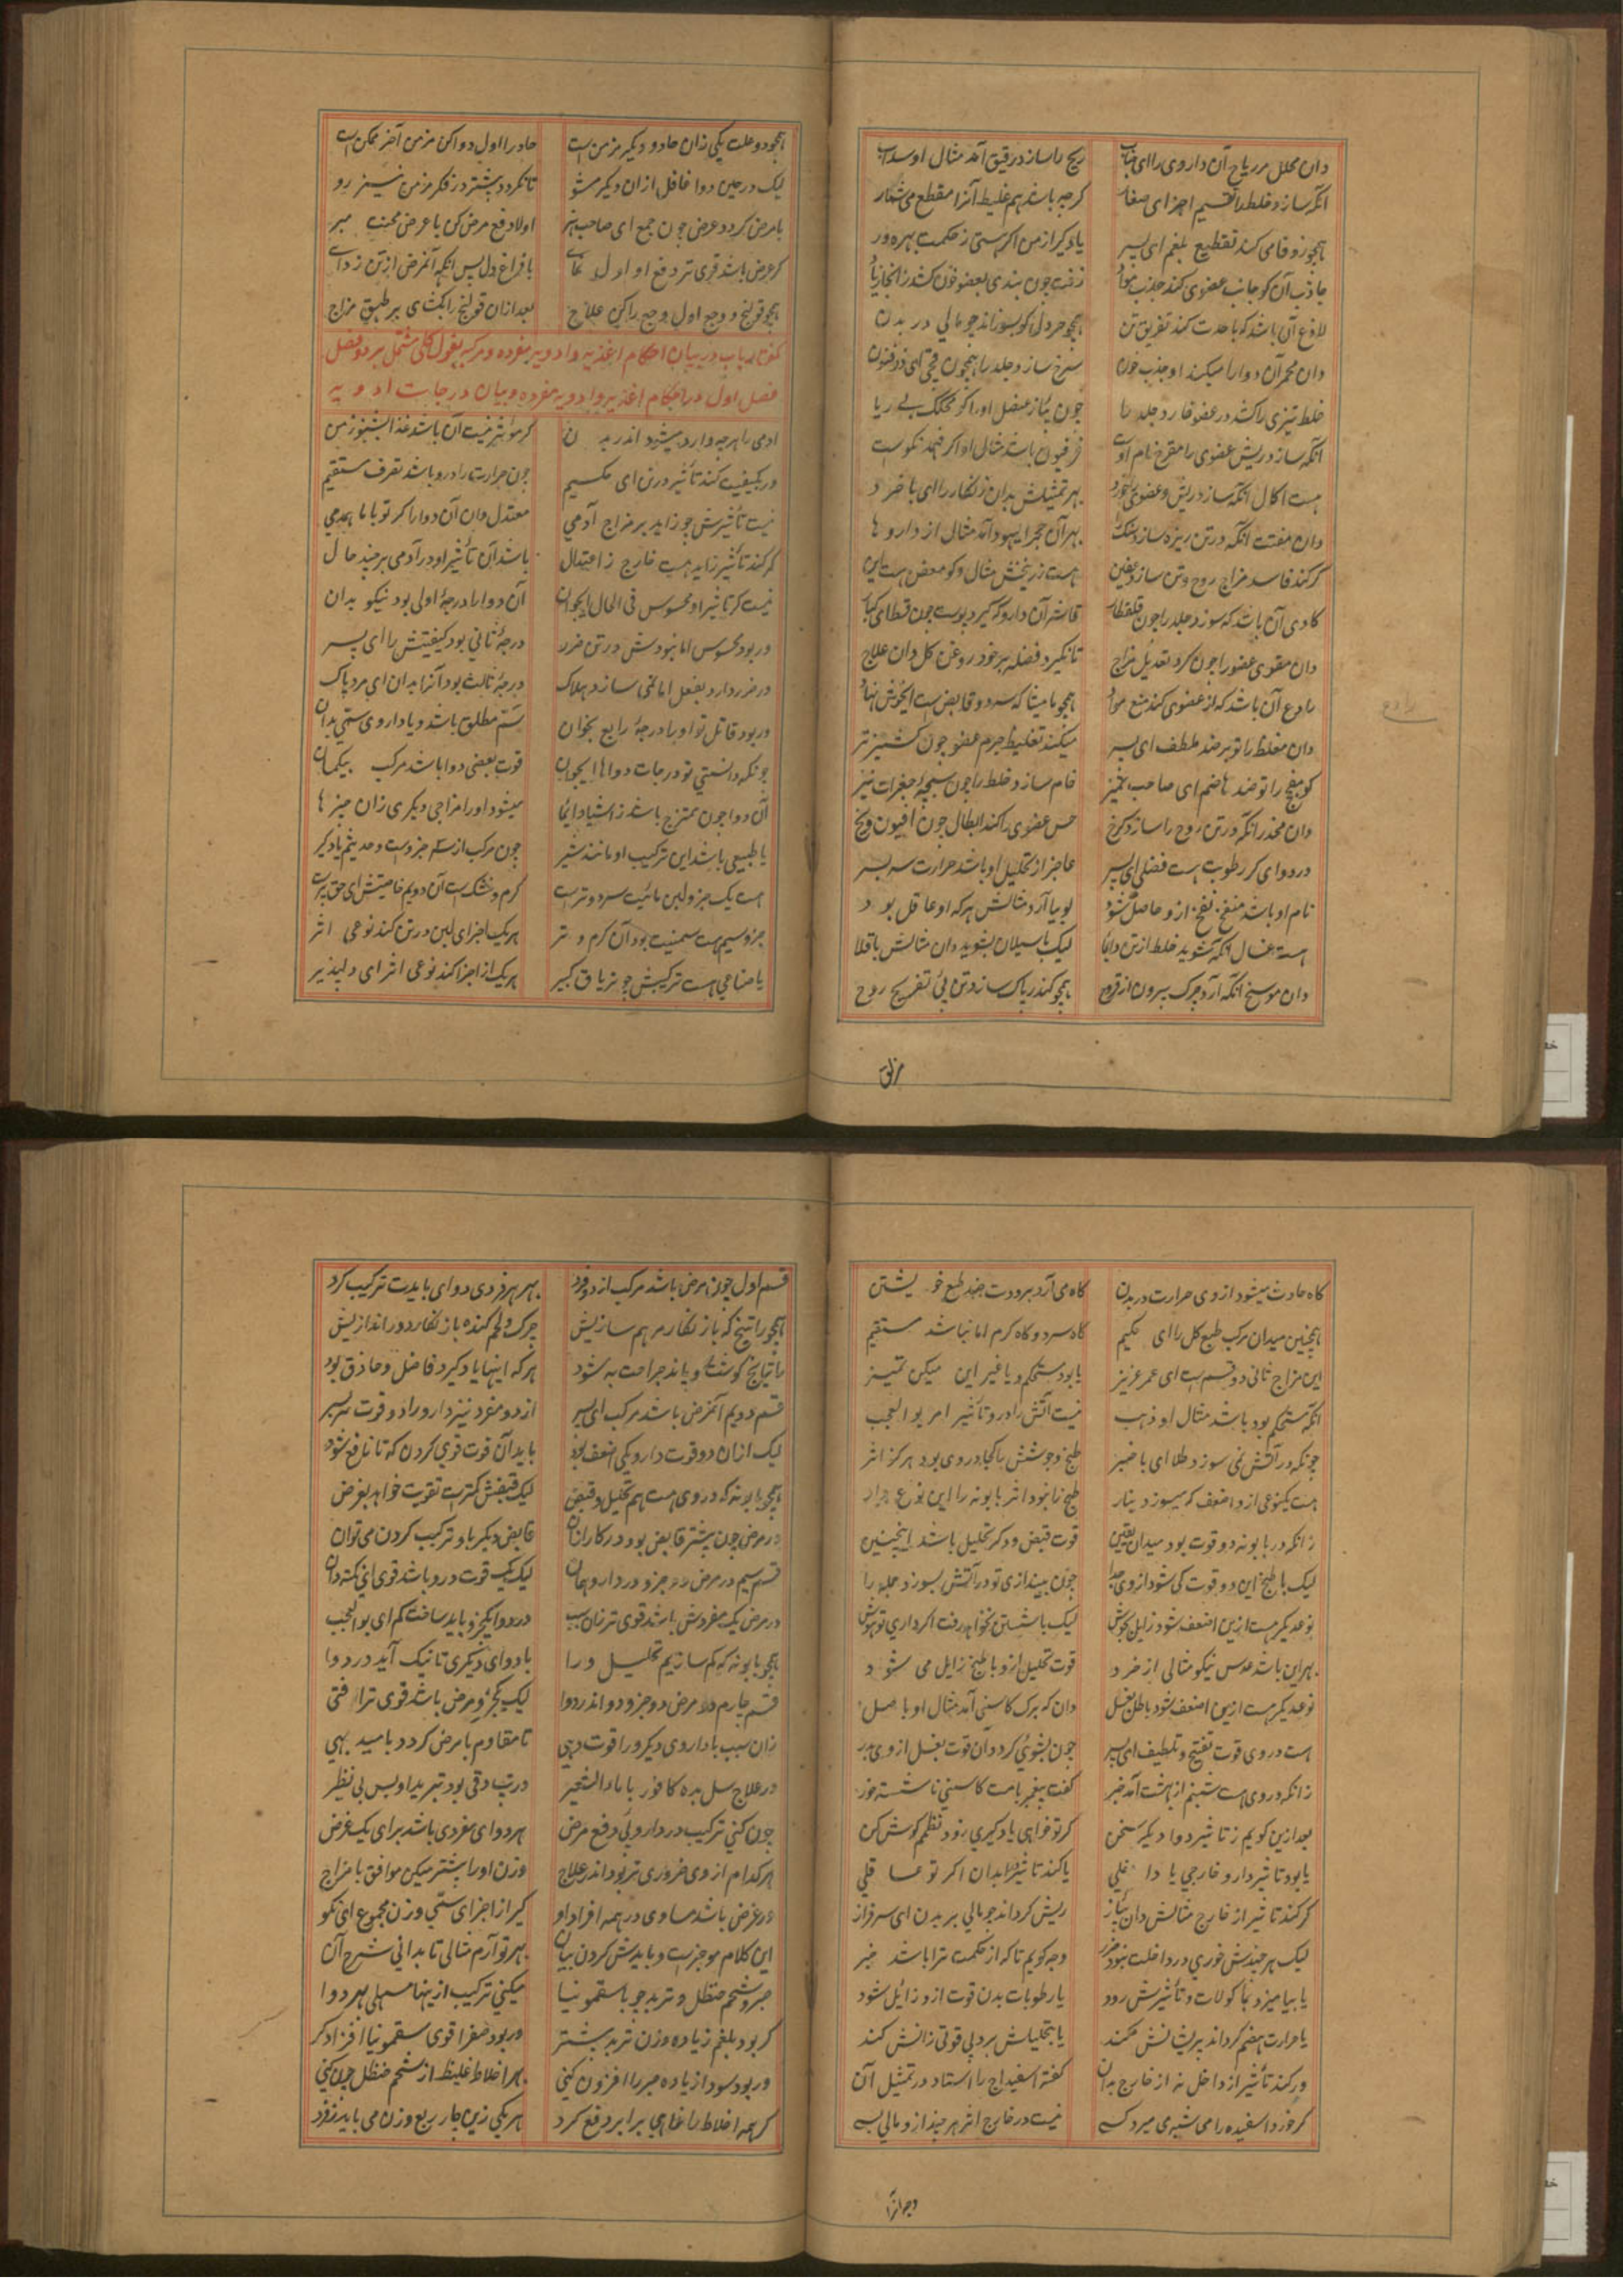 دان محلل مر ریاح آن داروی را ای جناب ریح را سازد رقیق آمد مثال او سداب
آنکه سازد خلط را تقسیم اجزای صغار گرچه باشد هم غلیظ آنرا مقطع می شمار
همچو زوفا می کند تقطیع بلغم ای پسر یاد گیر از من اگر هستی ز حکمت بهره ور
جاذب آن کو جانب عضوی کند جذب مواد زفت چون بندی بعضو خون کشد زانجا زیاد
لاذع آن باشد که با حدت کند تفریق تن همچو خردل کو بسوزاند چو مالی در بدن
دان محمر آن دوا را میکند او جذب خون سرخ سازد جلد را همچون فجل ای ذوفنون
خلط تیزی را کشد در عضو خارد جلد را چون پیاز عنصل او را گر محکک بی ریا
آنکه سازد ریش عضوی را مقرح نام اوست فرفیون باشد مثال او اگر فهمد نکوست
هست اکال آنکه سازد ریش و عضوی بهر تمثیلش بدان زنگار را ای با خرد
دان مفتت آنکه در تن ریزه سازد سنگ بهر آن حجر الیهود آمد مثال از داروها
گر کند فاسد مزاج روح و تن سازد عفین هست زرنیخش مثال و کو معفن هست این
کاوی آن باشد که سوزد جلد را چون قلقطار قاشر آن دارو که گیرد پوست چون قسط ای کبار
دان مقوی عضو را چون کرد تعدیل مزاج تا نگیرد فضله بر خود روغن گل دان علاج
رادع آن باشد که از عضوی کند منع مواد همچو مامیثا که سرد و قابض است ای خوش نهاد
دان مغلظ را تو بر ضد ملطف ای پسر میکند تغلیظ جرم عضو چون کشنیز تر
کو مفجج را تو ضد هاضم ای صاحب تمیز خام سازد خلط را چون سبجه جغرات نیز
دان مخدر آنکه در تن روح را سازد کرخ حس عضوی را کند ابطال چون افیون و یخ
در دوای گر رطوبت هست فضلی ای پسر عاجز از تحلیل او باشد حرارت سر بسر
نام او باشد منفخ نفخ ازو حاصل شود لوبیا آرد مثالش هر که او عاقل بود
هست غسال آنکه شوید خلط از تن دایما لیک با سیلان بشوید دان مثالش باقلا
دان موسخ آنکه آرد چرک بیرون از قروح همچو کندر پاک سازد تن پی تفریح روح
رادع
مزلق
همچو دو علت یکی زان حاد و دیگر مزمن است حاد را اول دوا کن مزمن آخر ممکن است
لیک در حین دوا غافل ازان دیگر مشو تا نگردد بیشتر در فکر مزمن نیز رو
با مرض گردد عرض چون جمع ای صاحب هنر اولا دفع مرض کن با عرض محنت مبر
گر عرض باشد قوی تر دفع او اول نمای با فراغ دل پس آنکه آنمرض از تن زدای
همچو قولنج و وجع اول وجع را کن علاج بعد ازان قولنج را بکشای بر طبق مزاج
گفتار باب در بیان احکام اغذیه و ادویه مفرده و مرکبه بقول کلی مشتمل بر دو فصل
فصل اول در احکام اغذیه و ادویه مفرده و بیان درجات ادویه
آدمی را هر چه وارد میشود اندر بدن گر مؤثر نیست آن باشد غذا بشنو ز من
ور بکیفیت کند تأثیر در تن ای حکیم چون حرارت را درو باشد تصرف مستقیم
نیست تأثیرش چو زاید بر مزاج آدمی معتدل دان آن دوا را گر تو با ما همدمی
گر کند تأثیر زاید هست خارج ز اعتدال باشد آن تأثیر او در آدمی بر چند حال
نیست گر تأثیر او محسوس فی الحال ای جوان آن دوا را درجه اولی بود نیکو بدان
ور بود محسوس اما نبودش در تن ضرر درجه ثانی بود کیفیتش را ای پسر
ور ضرر دارد بفعل اما نمی سازد هلاک درجه ثالث بود آنرا بدان ای مرد پاک
ور بود قاتل تو او را درجه رابع بخوان سم مطلق باشد و یا داروی سمی بدان
چونکه دانستی تو درجات دواها ای جوان قوت بعضی دوا باشد مرکب بیگمان
آن دوا چون ممتزج باشد ز اشیا دایما میشود او را مزاجی دیگری زان چیزها
یا طبیعی باشد این ترکیب او مانند شیر چون مرکب از سه جزوست و حدیثم یاد گیر
هست یک جزو لبن مائیت سرد و تر است گرم و خشک است آن دویم خاصیتش ای حق پرست
جزو سیم هست سمنیت بود آن گرم و تر هر یک اجزای لبن در تن کند نوعی اثر
یا صناعی هست ترکیبش چو تریاق کبیر هر یک از اجزا کند نوعی اثر ای دلپذیر
گاه حادث میشود از وی حرارت در بدن گاه می آرد برودت ضد طبع خویشتن
همچنین میدان مرکب طبع گل را ای حکیم گاه سرد و گاه گرم اما نباشد مستقیم
این مزاج ثانی دو قسم است ای عمر عزیز یا بود مستحکم و یا غیر این میکن تمیز
آنکه مستحکم بود باشد مثال او ذهب نیست آتش را درو تأثیر امر بوالعجب
چونکه در آتش نمی سوزد طلا ای با خبر طبخ و جوشش با کجا در وی بود هرگز اثر
هست یکنوعی ازو اضعف که میسوزد بنار طبخ را نبود اثر بابونه را این نوع
زانکه در بابونه دو قوت بود میدان یقین قوت قبض و دگر تحلیل باشد اینچنین
لیک با طبخ این دو قوت کی شود از وی جدا چون بیندازی تو در آتش بسوزد جمله را
نوع دیگر هست ازین اضعف شود زایل بجوش لیک با شستن نخواهد رفت اگر داری تو هوش
بهر این باشد عدس نیکو مثالی از خرد قوت تحلیل ازو با طبخ زایل می شود
نوع دیگر هست ازین اضعف شود باطل بغسل دان که برگ کاسنی آمد مثال او باصل
هست در وی قوت تفتیح و تلطیف ای پسر چون بشوئی گردد آن قوت بغسل از وی بدر
زانکه در وی هست شبنم از بهشت آمد خبر گفت پیغمبر بامت کاسنی ناشسته خور
بعد ازین گویم ز تأثیر دوا دیگر سخن گر تو خواهی یاد گیری زود نظمم گوش کن
یا بود تأثیر دارو خارجی یا داخلی یا کند تأثیر ابدان اگر تو عاقلی
گر کند تأثیر از خارج مثالش دان پیاز ریش گرداند چو مالی بر بدن ای سرفراز
لیک هر چندش خوری در داخلت نبود ضرر وجه گویم تا که از حکمت ترا باشد خبر
یا بیامیزد بمأکولات و تأثیرش رود یا رطوبات بدن قوت ازو زایل شود
یا حرارت هضم گرداند پریشانش کند یا بتحلیلش برد بی قوتی زانش کند
ور کند تأثیر از داخل نه از خارج بدان گفته اسفیداج را استاد در تمثیل آن
گر خورد اسفیده را می شبهه می میرد کسی نیست در خارج اثر هر چند ازو مالی بسی
قسم اول چون مرض باشد مرکب از دو فرد بهر هر فردی دوای بایدت ترکیب کرد
همچو راتینج که با زنگار مرهم سازیش چرک و لحم گنده با زنگار دور اندازیش
راتیانج گوشت رویاند جراحت به شود هر که اینها یاد گیرد فاضل و حاذق بود
قسم دویم آنمرض باشد مرکب ای پسر از دو مفرد نیز دارو را دو قوت سر بسر
لیک ازان دو قوت دارو یکی اضعف بود باید آن قوت قوی کردن که تا نافع شود
همچو بابونه که در وی هست هم تحلیل و قبض لیک قبضش کمتر است تقویت خواهد بغرض
در مرض چون بیشتر قابض بود در کار آن قابض دیگر باو ترکیب کردن می توان
قسم سیم در مرض دو جزو در دارو همان لیک یک قوت درو باشد قوی ای نکته دان
در مرض یک مفردش باشد قوی تر زان سبب در دوا یکجزو باید ساخت کم ای بوالعجب
همچو بابونه که کم سازیم تحلیل ورا با دوای دیگری تا نیک آید در دوا
قسم چارم در مرض دو جزو و دو اندر دوا لیک یکجزو مرض باشد قوی تر ای فتی
زان سبب با داروی دیگر ورا قوت دهی تا مقاوم با مرض گردد بامید بهی
در علاج سل بده کافور با ماء الشعیر در تب دقی بود تبرید او بس بی نظیر
چون کنی ترکیب در دارو پی دفع مرض هر دوای مفردی باشد برای یک غرض
هر کدام از وی ضروری تر بود اندر علاج وزن او را بیشتر میکن موافق با مزاج
ور غرض باشد مساوی در همه افراد او گیر از اجزای ستی وزن مجموع ای نکو
این کلام موجز است و بایدش کردن بیان بهر تو آرم مثالی تا بدانی شرح آن
صبر و شحم حنظل و تربد چو با سقمونیا میکنی ترکیب ازینها مسهلی بهر دوا
گر بود بلغم زیاده وزن تربد بیشتر ور بود صفرا قوی سقمونیا افزاد گر
ور بود سودا زیاده صبر را افزون کنی بهر اخلاط غلیظ از شحم حنظل چون کنی
گر همه اخلاط را خواهی برابر دفع کرد هر یکی زین چار ربع وزن می باید ز فرد